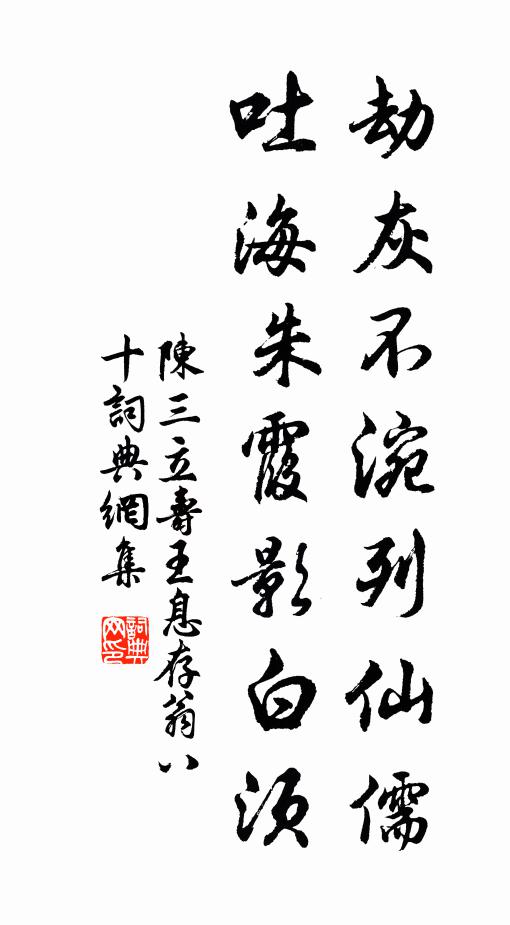 劫灰不涴列仙儒
吐海朱霞影白須
陳三立壽王息存翁八
十詞典網集
詞典網印